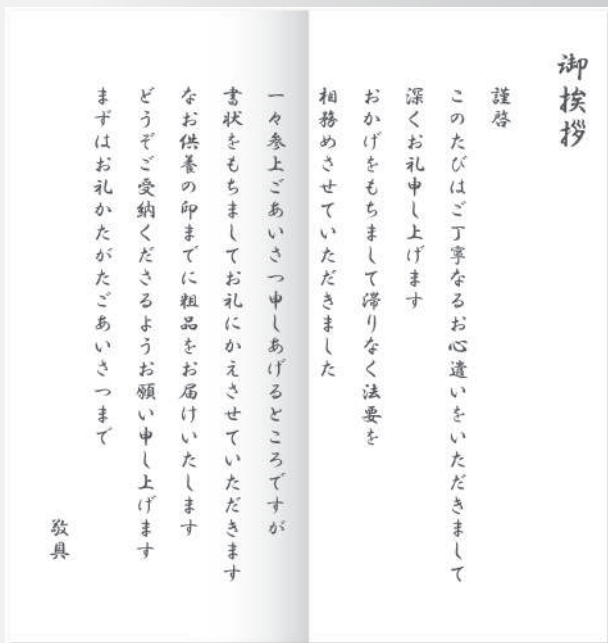 御挨拶
謹啓
このたびはご丁寧なるお心遣いをいただきまして
深くお礼申し上げます
おかげをもちまして滞りなく法要を
相務めさせていただきました
一々参上ごあいさつ申しあげるところですが
書状をもちましてお礼にかえさせていただきます
なお供養の印までに粗品をお届けいたします
どうぞご受納くださるようお願い申し上げます
まずはお礼かたがたごあいさつまで
敬具